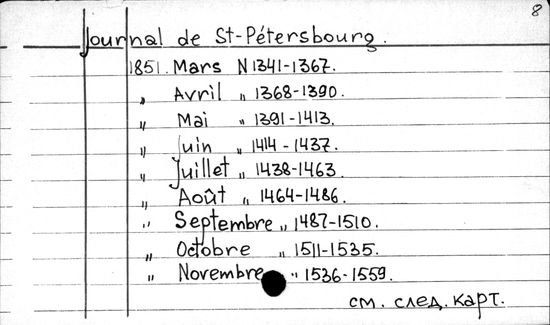 8
Journal de St-Pétersbourg.
1851. Mars N 1341-1367.
„ Avril „ 1368-1390.
„ Mai „ 1391-1413.
„ Juin „ 1414-1437.
„ Juillet „ 1438-1463.
„ Août „ 1464-1486.
„ Septembre „ 1487-1510.
„ Octobre „ 1511-1535.
„ Novembre „ 1536-1559.
см. след. карт.